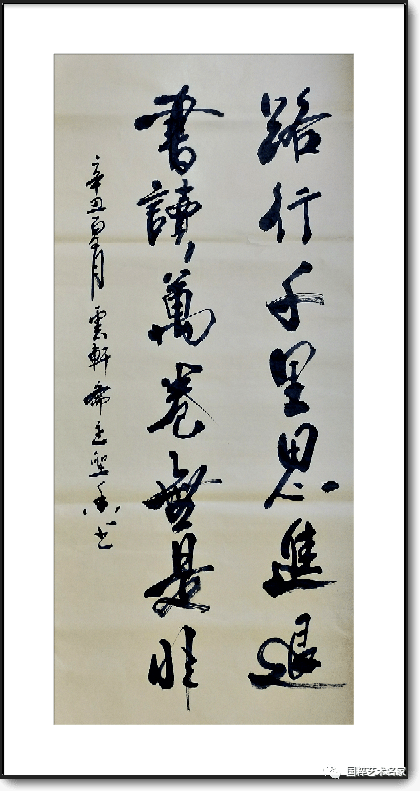 路行千里思進退
書讀萬卷無是非
辛丑夏月雲軒 书
国粹艺术名家